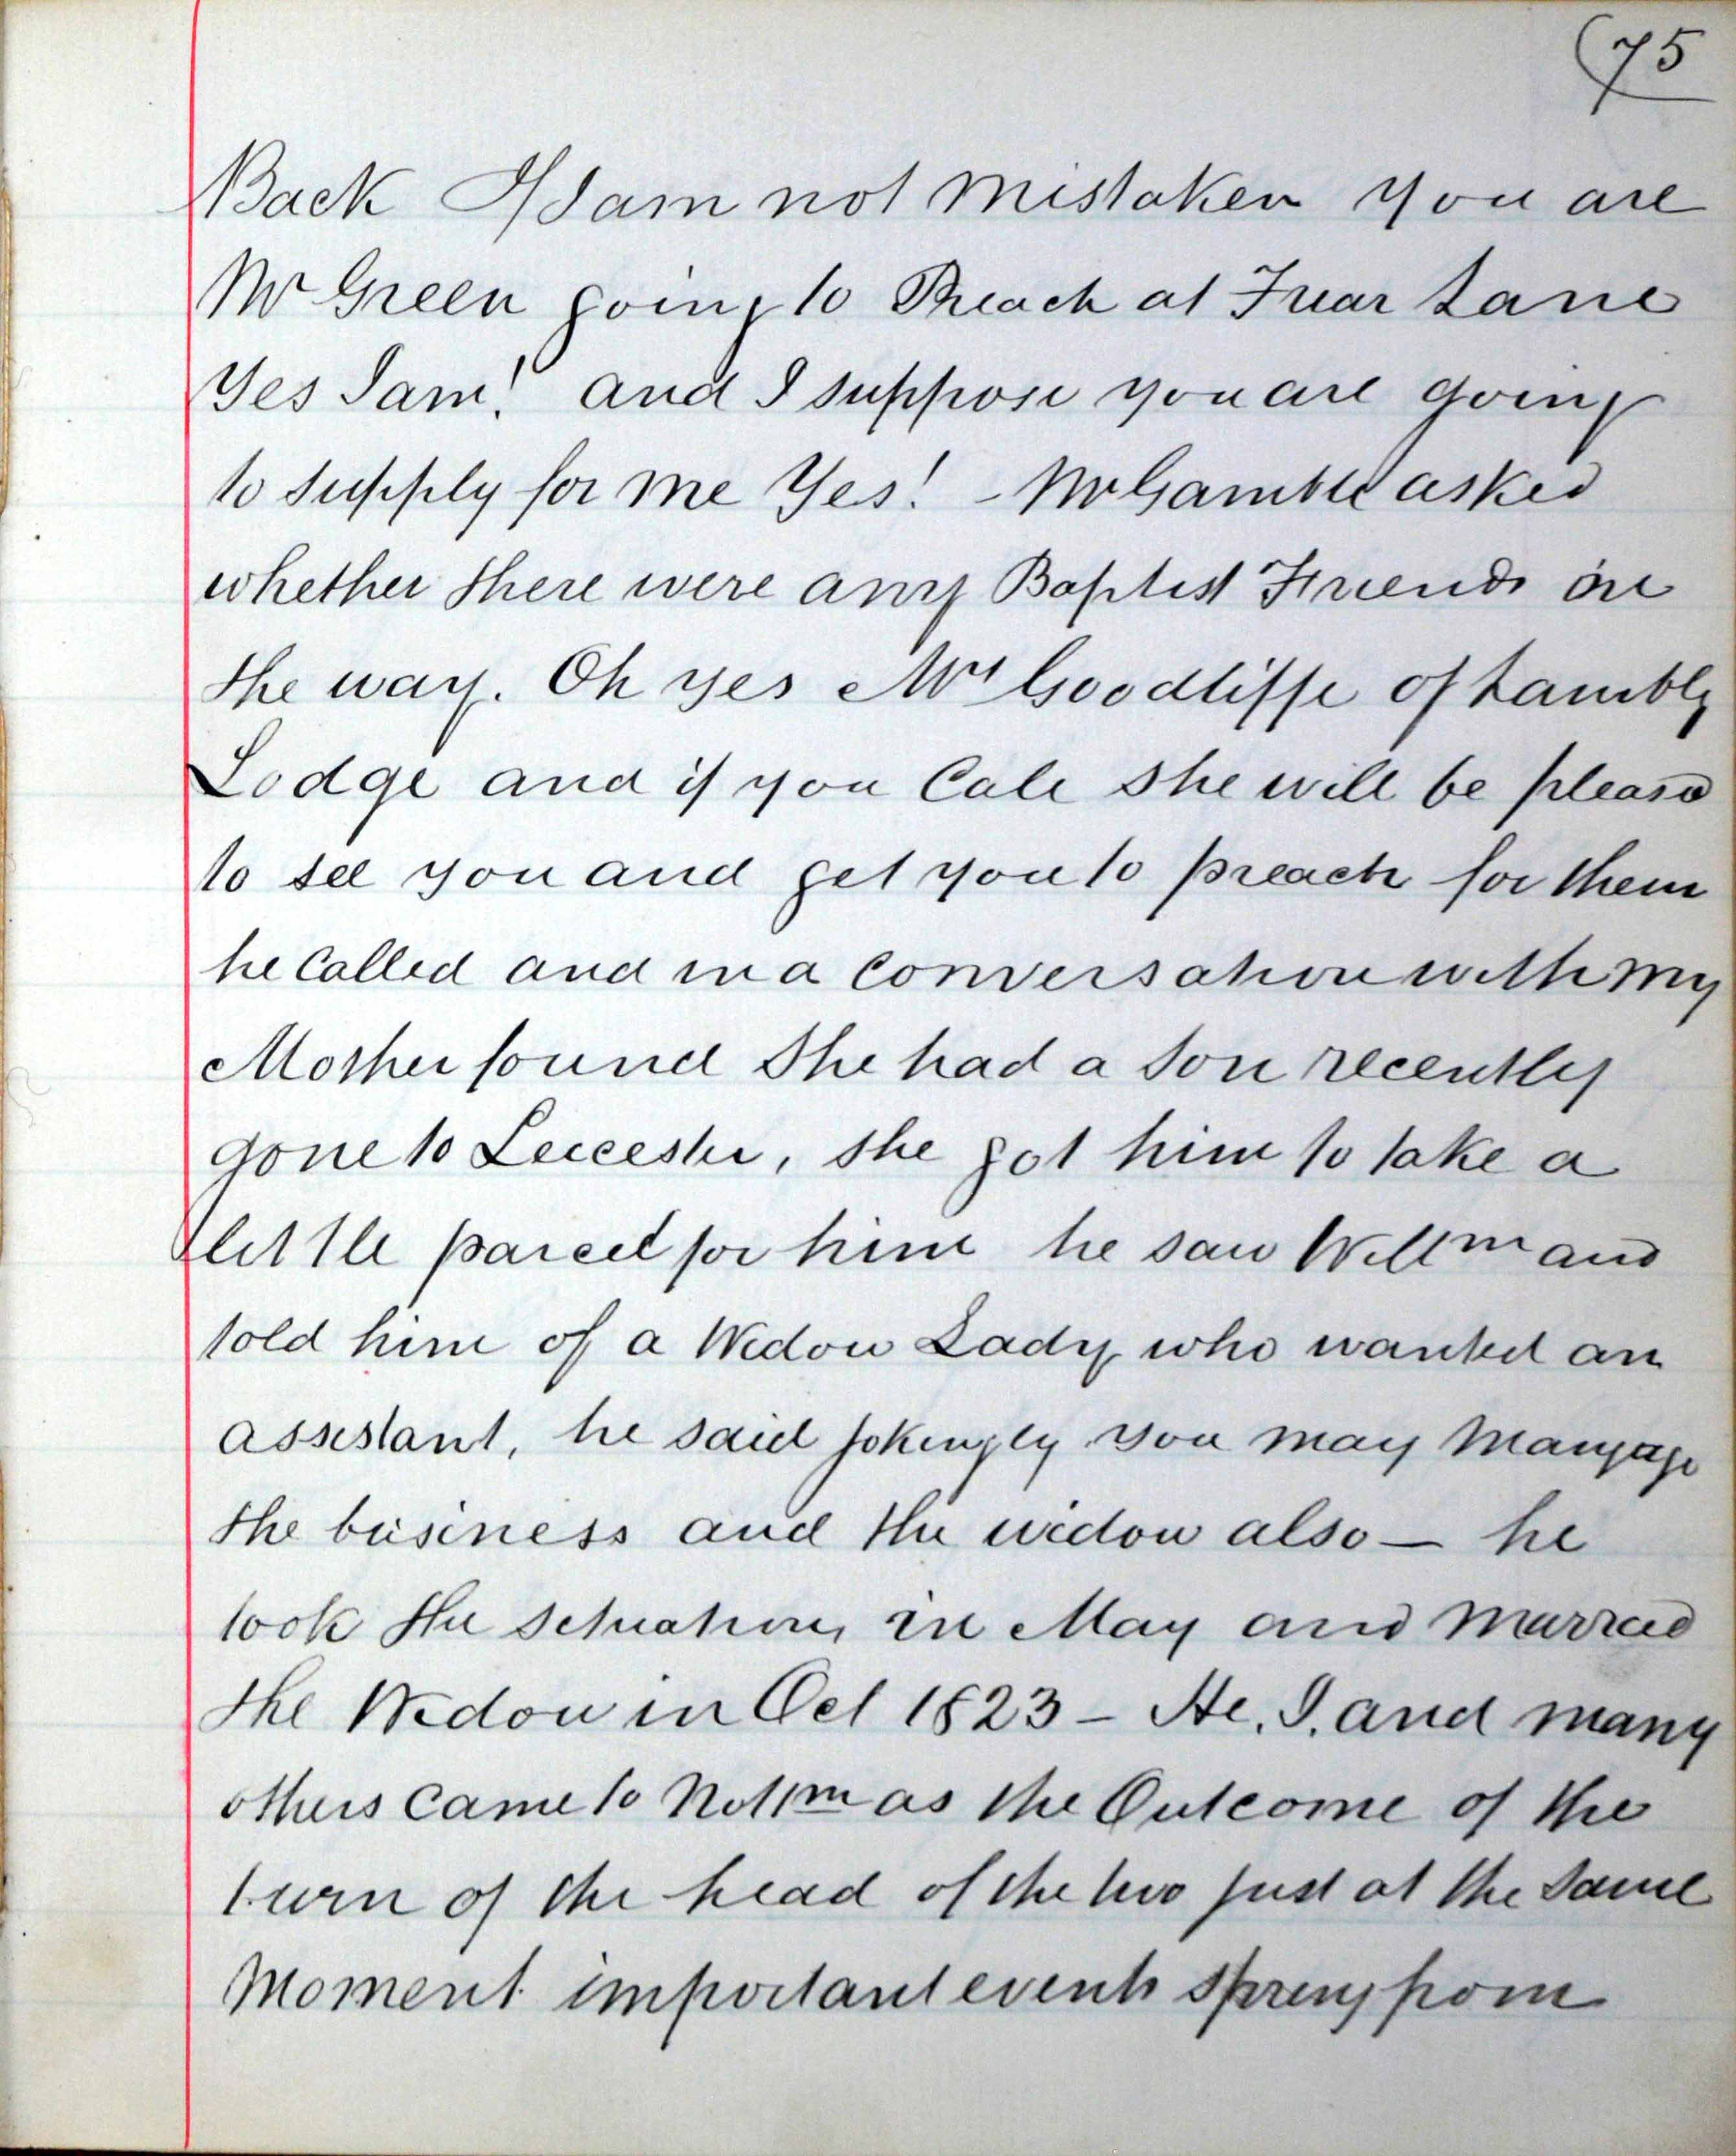 75
Back If I am not mistaken you are
Mr Green going to Preach at Friar Lane
Yes I am! and I suppose you are going
to supply for me Yes! - Mr Gamble asked
whether there were any Baptist Friends on
the way. Oh yes Mrs Goodliffe of Lambly
Lodge and if you Call she will be pleasd
to see you and get you to preach for them
he Called and in a Conversation with my
Mother found She had a Son recently
gone to Leicester, she got him to take a
little parcel for him he saw Willm and
told him of a Widow Lady who wanted an
assistant, he said jokingly you may Mangage
the business and the widow also — he
took the situation, in May and Married
the Widow in Oct 1823 - He. I. and many
others Came to Nottm as the Outcome of the
turn of the head of the two just at the same
Moment important events spring from